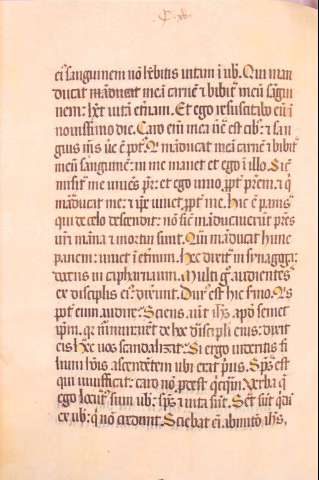 ei⁹ sanguinem nō h̄ebitis vitam ī uob̄. Qui man
ducat meā carnē ⁊ bibit meū sāgui
nem: h̄et vitā et̄nam. Et ego resuscitabo eū ī
nouissimo die. Caro em̄ mea ūe est cib⁹: ⁊ san
guis m̄s ūe ē pot⁹. Q̄ māducat meā carnē ⁊ bibit
meū sanguinē: in me manet et ego ī illo. Sic
misit me viuēs pr̄: et ego viuo ꝓpt̄ prēm. ⁊ q̄
māducat me: ⁊ ip̄e viuet ꝓpt̄ me. Hic ē panis
qui de celo descendit: nō sic māducauerūt pr̄es
vr̄i māna ⁊ mortui sunt. Qui māducat hunc
panem: viuet ī et̄num. Hec dixit ī synagoga:
docens in capharnaum. Multi g⁰ audientes
ex discipulis ei⁹: dixerūt. Dur⁹ est hic s̄mo. Q⁹
pot̄ eum audire? Sciens aūt ih̄s apd̓ semet
ip̄m. q̄ murmurarēt de hoc discipli eius: dixit
eis. Hoc vos scandalizat? Si ergo videritis fi
lium hōis ascendētem vbi erat prius. Sp̄s est
qui viuificat: caro nō ꝓdest q̄cq̄m. Verba q̄
ego locut⁹ sum uob̄: sp̄s ⁊ vita sūt. Sed sūt q̄dā
ex uob̄: q̄ nō credunt. Sciebat em̄ ab inicio ih̄s,